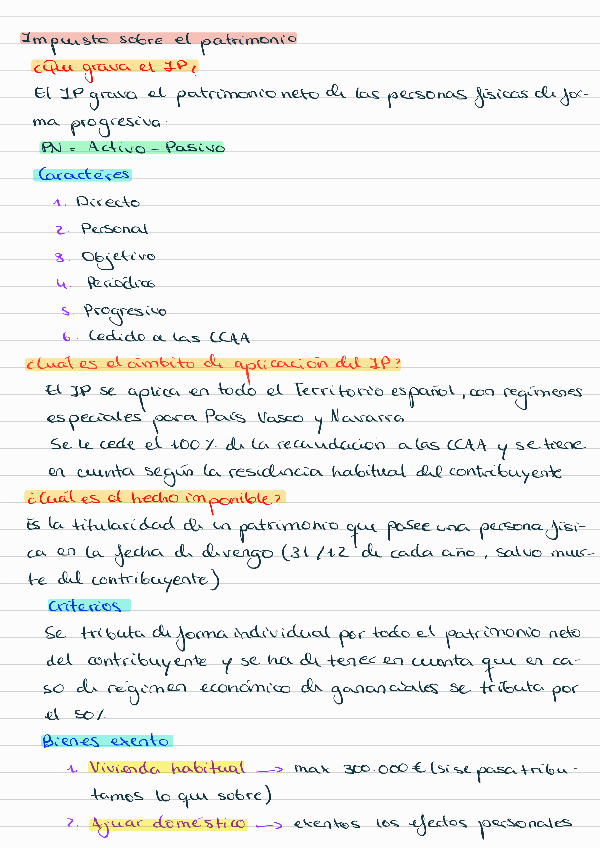 Impuesto sobre el patrimonio
¿Que grava el IP?
El IP grava el patrimonio neto de las personas físicas de for-
ma progresiva.
PN = Activo - Pasivo
Caracteres
1. Directo
2. Personal
3. Objetivo
4. Periódico
5. Progresivo
6. Cedido a las CCAA
¿Cual es el ámbito de aplicación del IP?
El IP se aplica en todo el Territorio español, con regímenes
especiales para País Vasco y Navarra
Se le cede el 100% de la recaudacion a las CCAA y se tiene
en cuenta según la residencia habitual del contribuyente
¿Cuál es el hecho imponible?
Es la titularidad de un patrimonio que posee una persona físi-
ca en la fecha de divengo (31/12 de cada año, salvo muer-
te del contribuyente)
Criterios
Se tributa de forma individual por todo el patrimonio neto
del contribuyente y se ha de tener en cuenta que en ca-
so de régimen económico de gananciales se tributa por
el 50%
Bienes exento
1. Vivienda habitual → max 300.000€ (si se pasa tribu-
tamos lo que sobre)
2. Ajuar doméstico → exentos los efectos personales